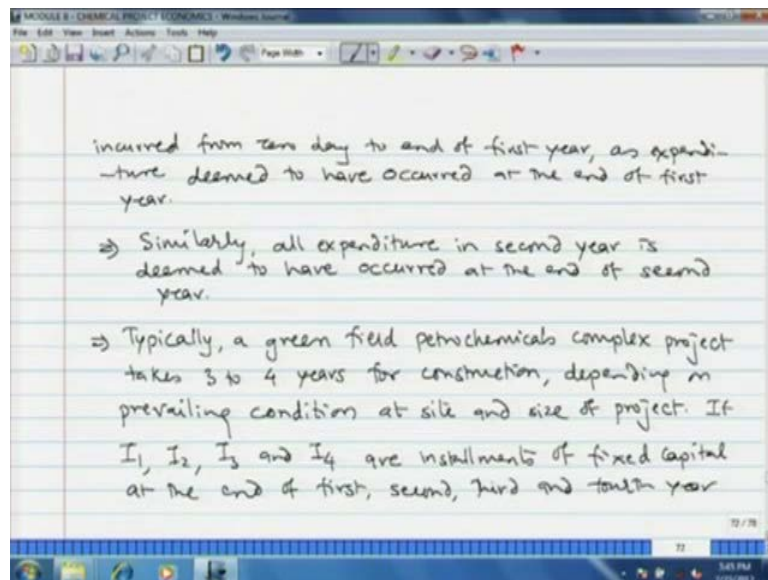 MODULE 8 - CHEMICAL PROJECT ECONOMICS - Windows Journal
File Edit View Insert Actions Tools Help
Page Width
incurred from zero day to end of first year, as expendi-
-ture deemed to have occurred at the end of first
year.
⇒ Similarly, all expenditure in second year is
deemed to have occurred at the end of second
year.
⇒ Typically, a green field petrochemicals complex project
takes 3 to 4 years for construction, depending on
prevailing condition at site and size of project. If
I1, I2, I3 and I4 are installments of fixed capital
at the end of first, second, third and fourth year
72 / 78
72
5:45 PM